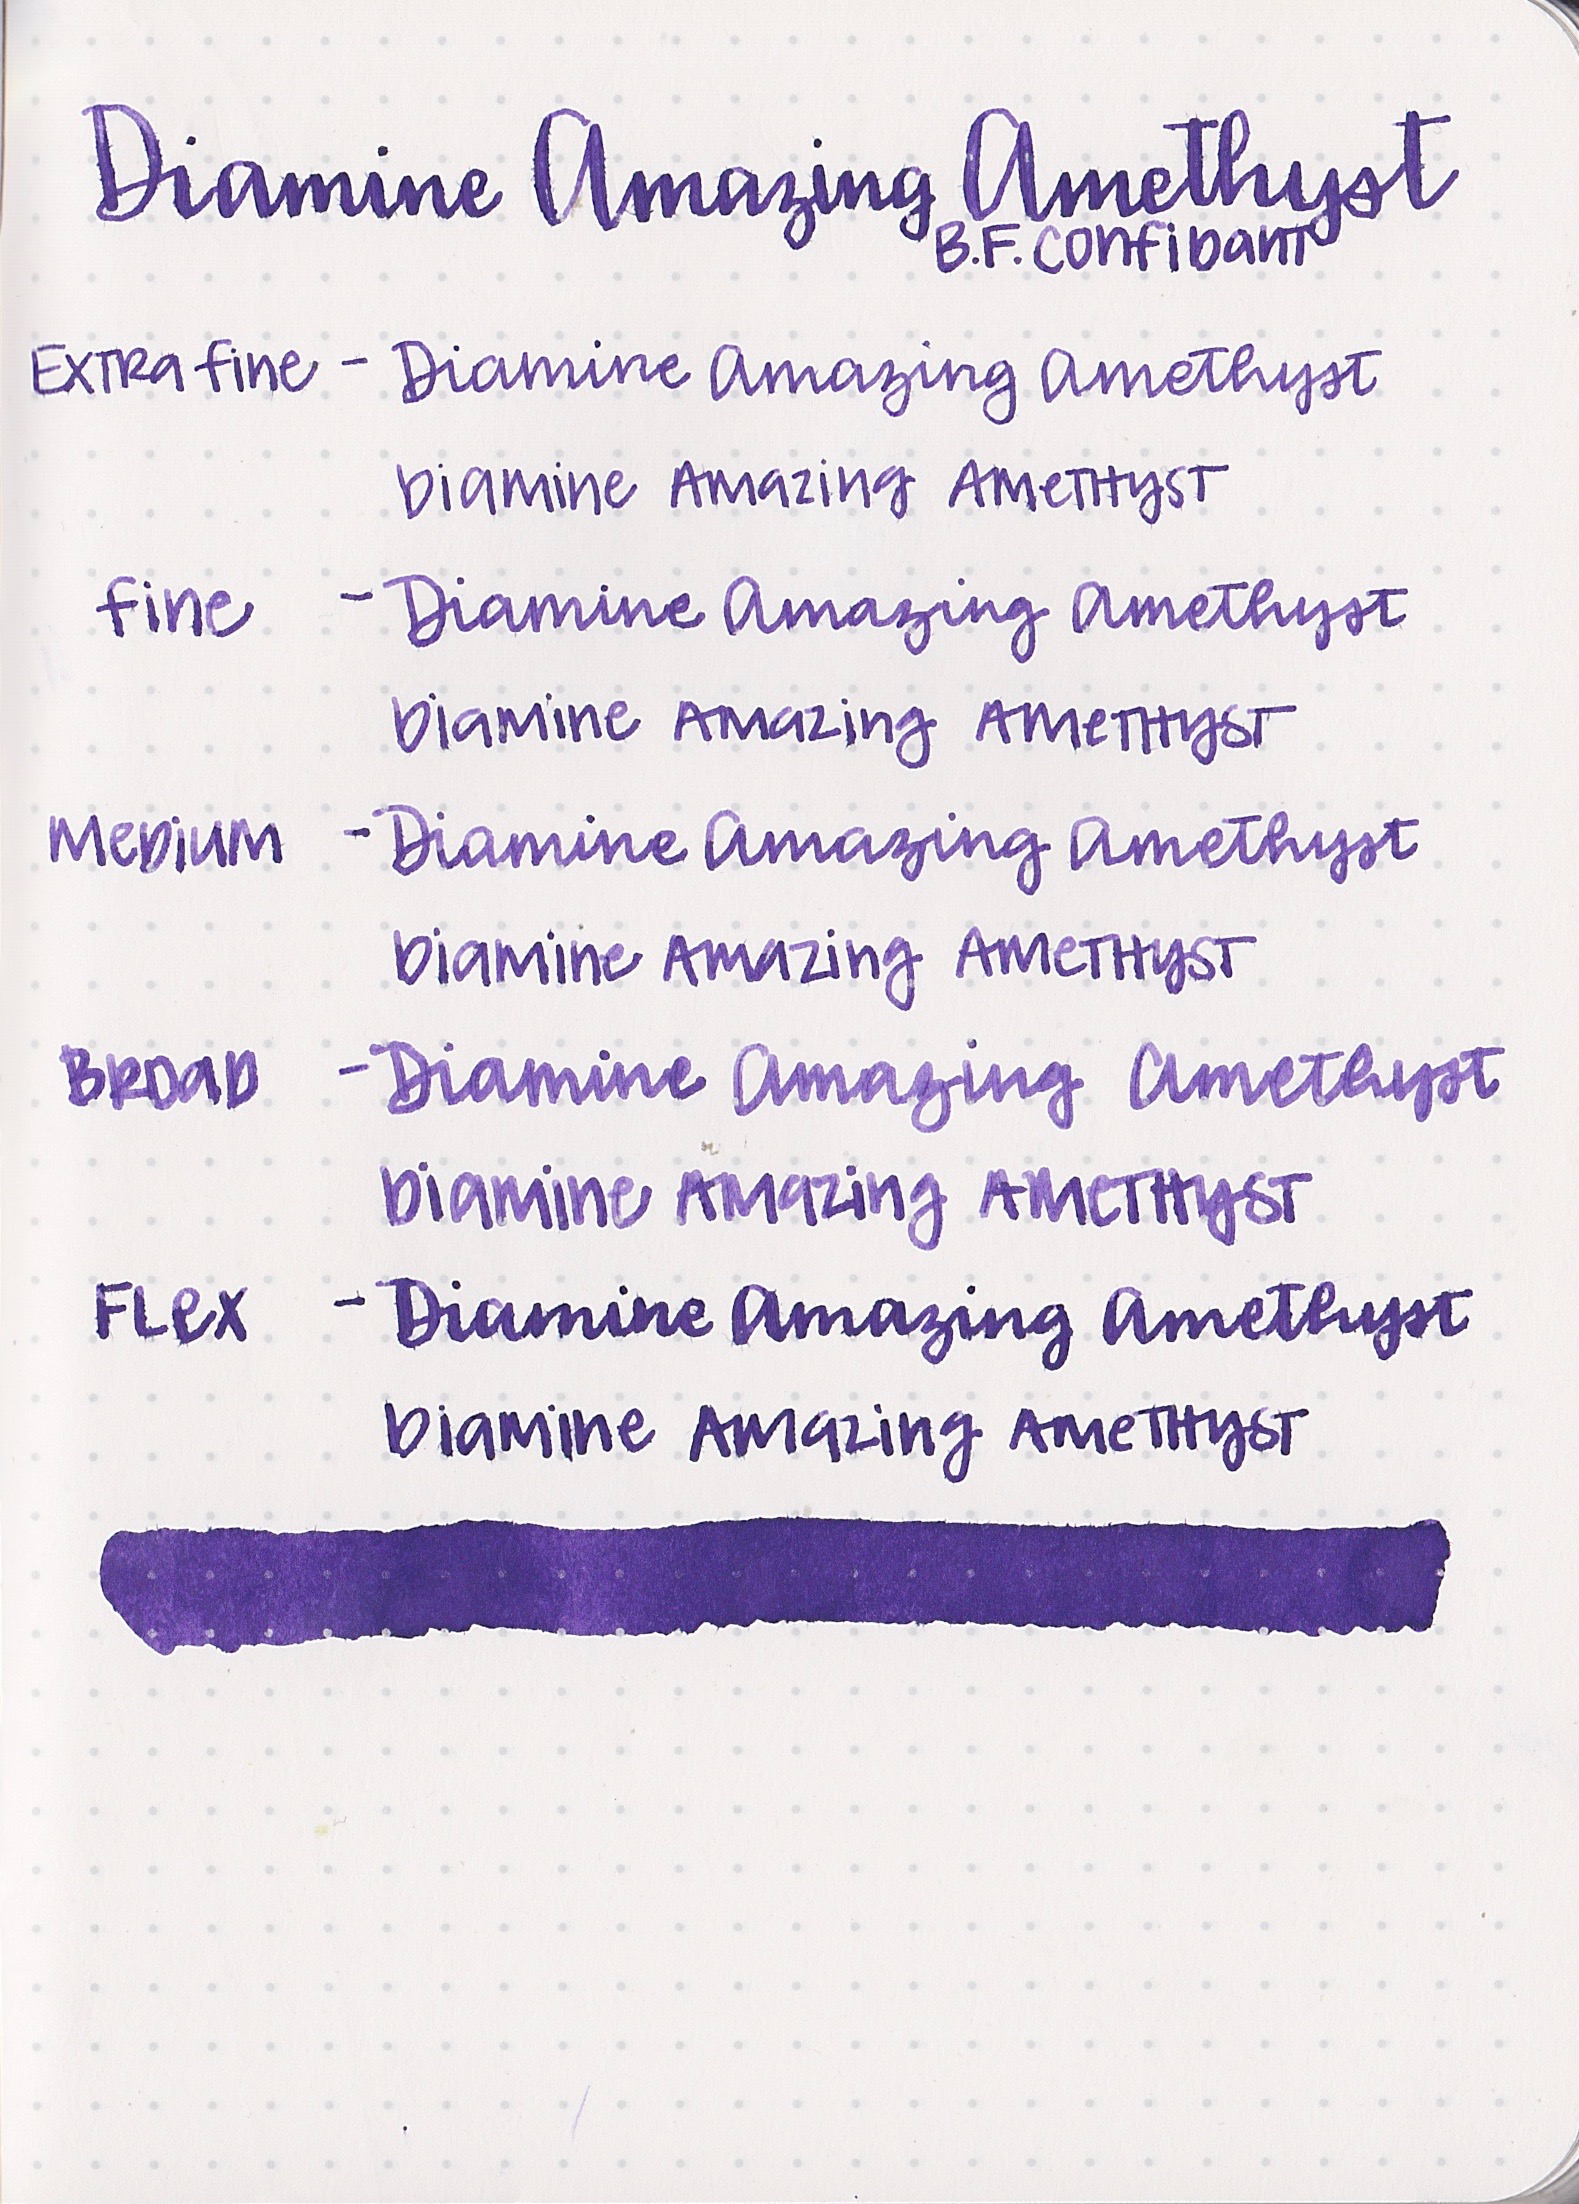 Diamine Amazing Amethyst
B.F. Confidant
Extra fine - Diamine Amazing Amethyst
Diamine Amazing Amethyst
fine - Diamine Amazing Amethyst
Diamine Amazing Amethyst
Medium - Diamine Amazing Amethyst
Diamine Amazing Amethyst
Broad - Diamine Amazing Amethyst
Diamine Amazing Amethyst
Flex - Diamine Amazing Amethyst
Diamine Amazing Amethyst